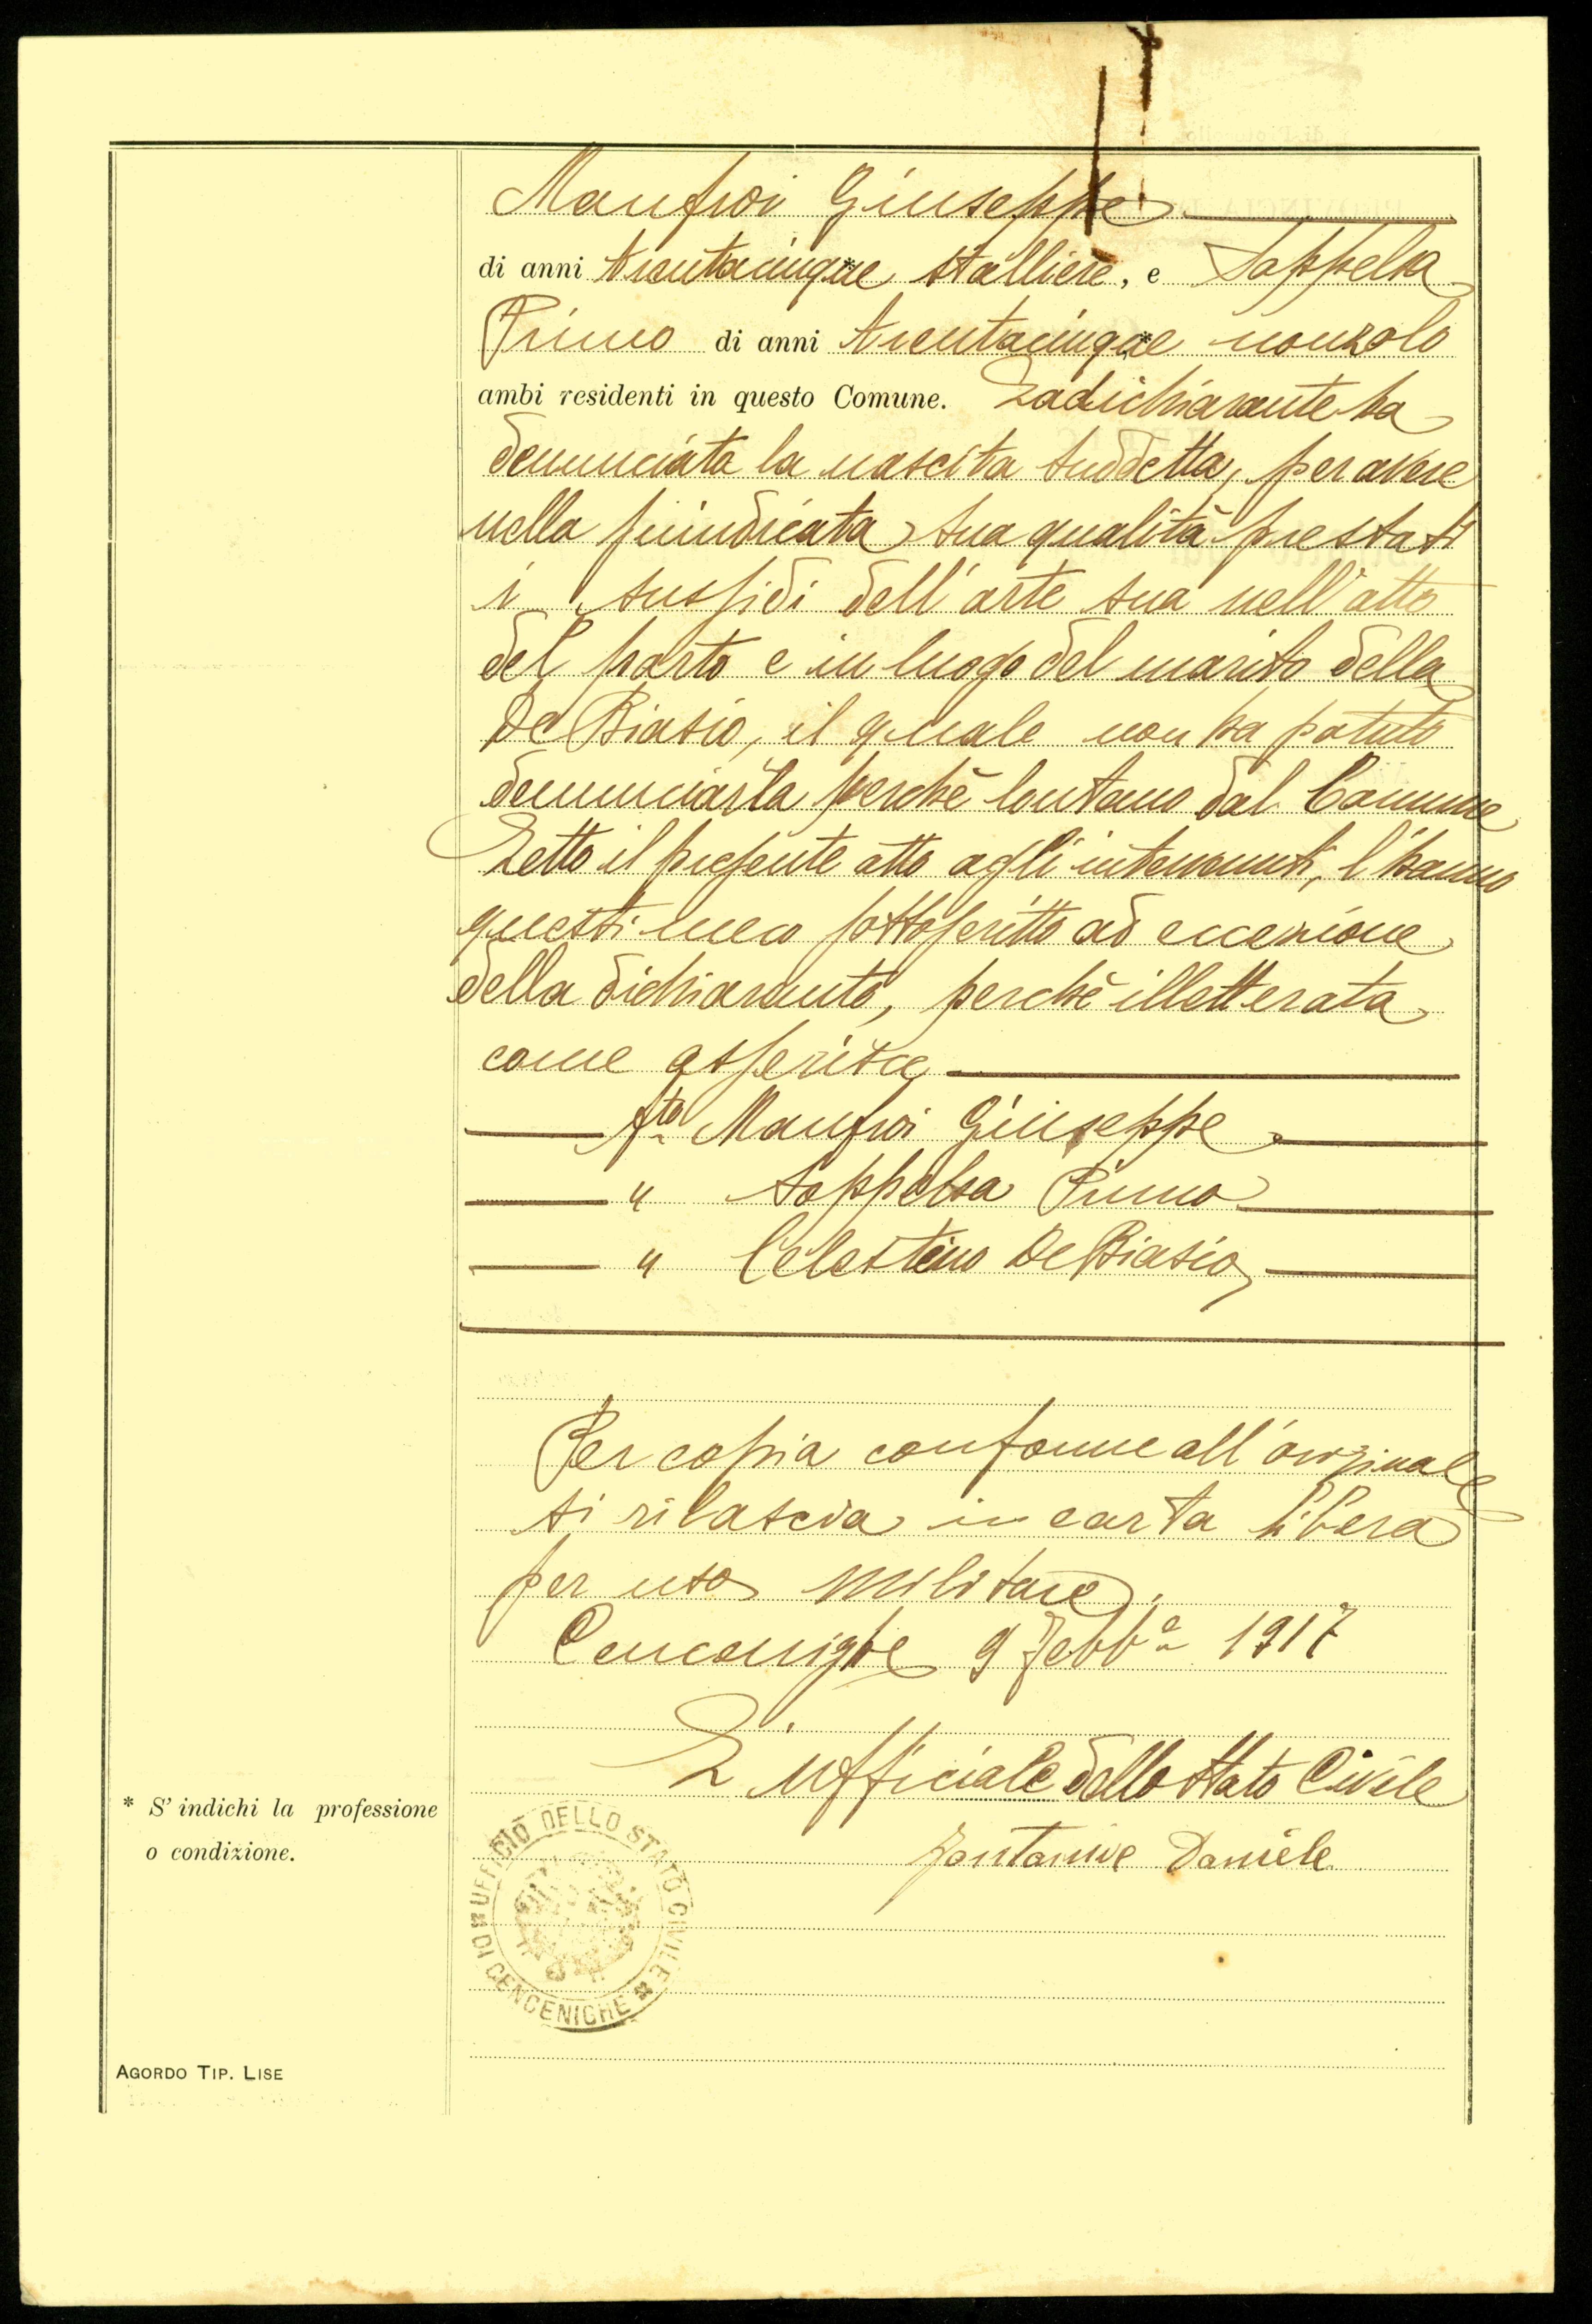 Manfroi Giuseppe
di anni trentacinque stalliere, e Soppelsa
Primo di anni trentacinque nonzolo
ambi residenti in questo Comune. La dichiarante ha
denunciata la nascita suddetta, per avere
nella preindicata sua qualità prestati
i sussidi dell'arte sua nell'atto
del parto e in luogo del marito della
De Biasio, il quale non ha potuto
denunciarla perchè lontano dal Comune
Letto il presente atto agli intervenuti, l'hanno
questi meco sottoscritto ad eccezione
della dichiarante, perchè illetterata
come asserisce
fto Manfroi Giuseppe
" Soppelsa Primo
" Celestino De Biasio
Per copia conforme all'originale
si rilascia in carta libera
per uso militare.
Cencenighe 9 Febbo 1917
L'ufficiale dello Stato Civile
Fontanive Daniele
* S' indichi la professione
o condizione.
UFFICIO DELLO STATO CIVILE
DI CENCENIGHE
AGORDO TIP. LISE